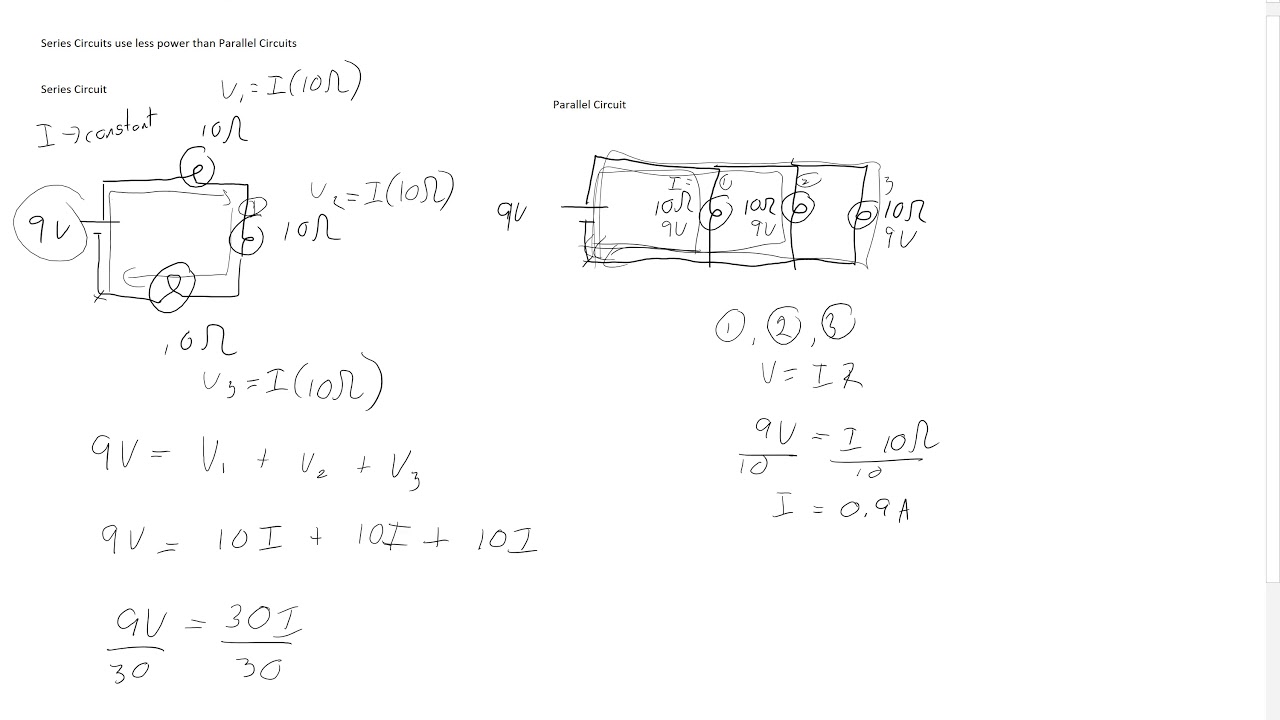 Series Circuits use less power than Parallel Circuits
Series Circuit
V₁ = I(10Ω)
I → constant
10Ω
9V
1
10Ω
V₂ = I(10Ω)
10Ω
V₃ = I(10Ω)
9V = V₁ + V₂ + V₃
9V = 10I + 10I + 10I
9V = 30I
30 30
Parallel Circuit
9V
I= ① ② 3
10Ω 10Ω 10Ω
9V 9V 9V
①, ②, ③
V = IR
9V = I 10Ω
10 10
I = 0.9A